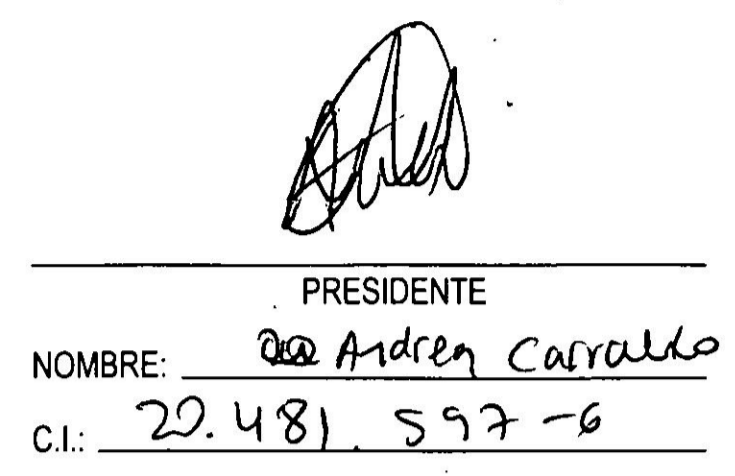 PRESIDENTE
NOMBRE: Andrea
C.I.: 20.481.597-6